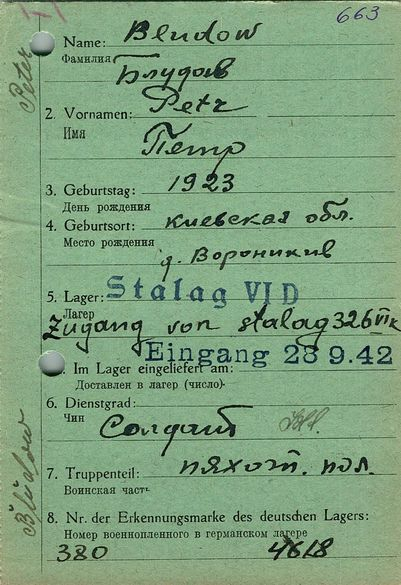 663
Peter
Name: Bludow
Фамилия Блудов
2. Vornamen: Petr
Имя Петр
3. Geburtstag: 1923
День рождения
4. Geburtsort: Киевская обл.
Место рождения
д. Вороникив
5. Lager: Stalag VI D
Лагер
Zugang von Stalag 326 VI K
Eingang 28 9.42
Im Lager eingeliefert am:
Доставлен в лагер (число)·
6. Dienstgrad:
Чин Солдат
7. Truppenteil: пяхот. пол.
Воинская часть
Bludow
8. Nr. der Erkennungsmarke des deutschen Lagers:
Номер военнопленного в германском лагере
380 4618